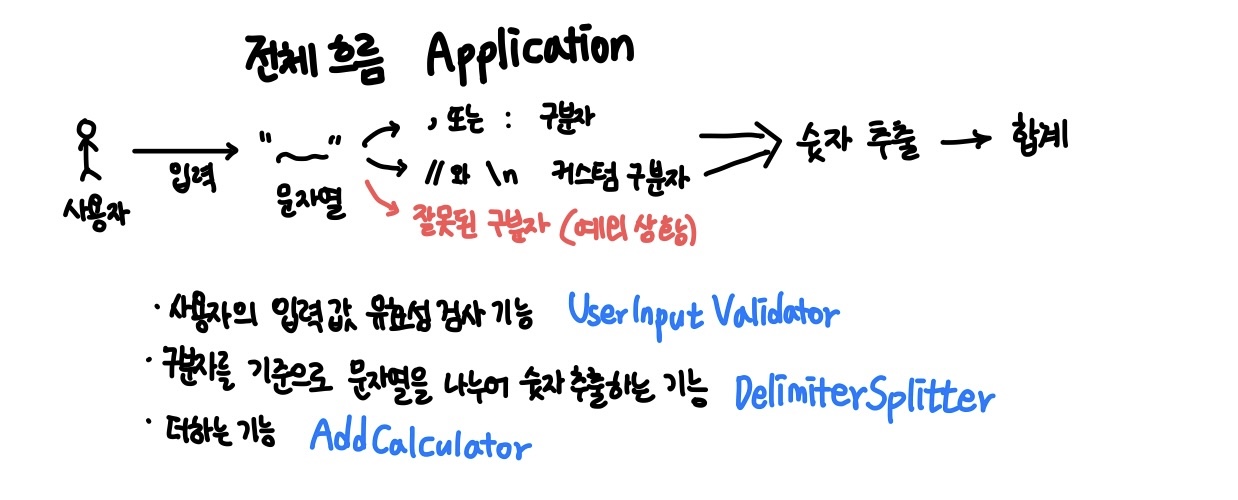 전체 흐름 Application
, 또는 : 구분자
" ~ "
// 와 \n 커스텀 구분자
숫자 추출 → 합계
입력
문자열
사용자
잘못된 구분자 (예외 상황)
· 사용자의 입력값 유효성 검사 기능 UserInput Validator
· 구분자를 기준으로 문자열을 나누어 숫자 추출하는 기능 DelimiterSplitter
· 더하는 기능 AddCalculator